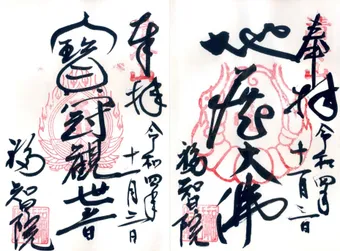 奉拝
令和四年
十一月三日
地蔵大佛
福智院
奉拝
令和四年
十一月三日
宝冠観世音
福智院